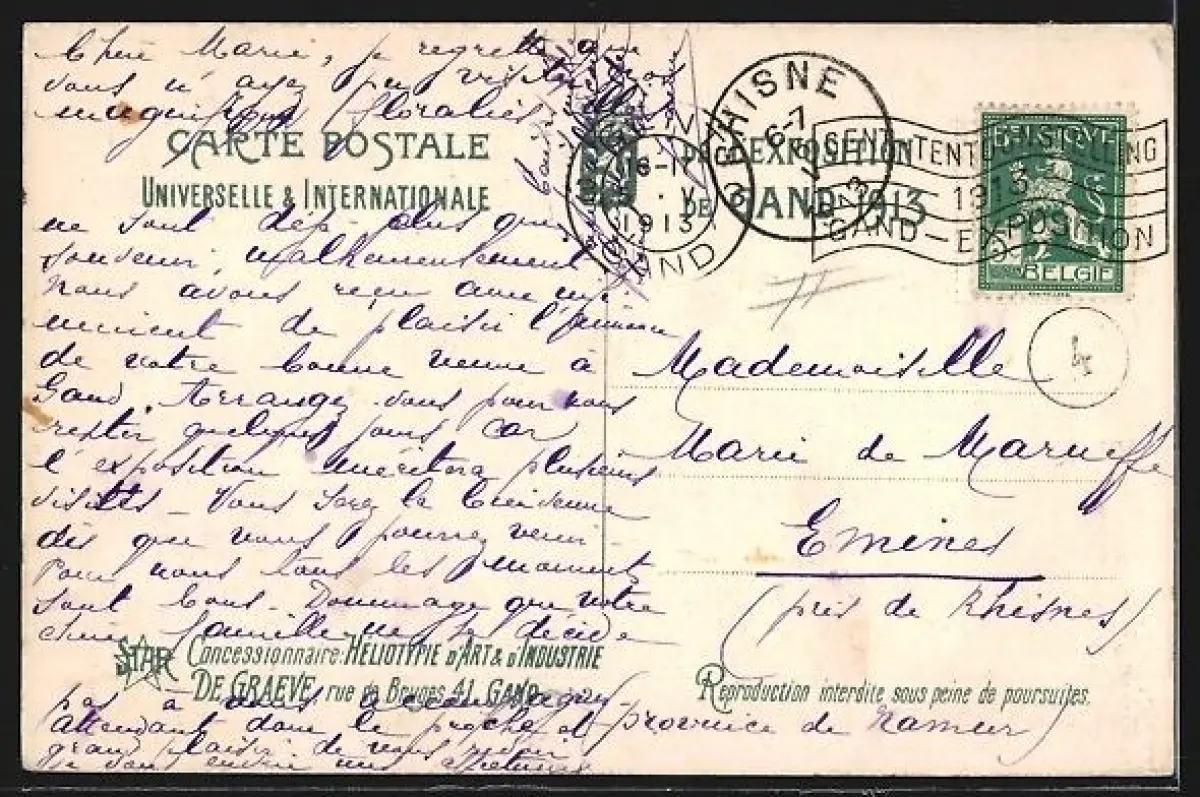 Chère Marie, je regrette que
vous n'ayez pu visiter nos
magnifiques floralies
CARTE POSTALE
UNIVERSELLE & INTERNATIONALE
ne sont déjà plus que
souvenir, malheureusement
Nous avons reçu avec
de plaisir l'annonce
de votre bonne venue à
Gand. Arrangez vous pour nous
rester quelques jours car
l'exposition méritera plusieurs
visites – Vous serez la bienvenue
dès que vous pourrez venir –
Pour nous tous les moments
sont bons – Dommage que votre
chère famille ne se décide
STAR
Concessionnaire: HÉLIOTYPIE D'ART & D'INDUSTRIE
DE GRAEVE, rue de Bruges 41, GAND
pas à vous accompagner
Attendant dans le proche et
grand plaisir de vous revoir
je vous envoie mes
EXPOSITION
DE GAND 1913
RHISNE
6-7
V
1913
GAND
V
1913
GENT TENTOONSTELLING
1913
GAND – EXPOSITION
BELGIQUE
BELGIE
4
Mademoiselle
Marie de Marneffe
Emines
(près de Rhisnes)
Reproduction interdite sous peine de poursuites.
province de Namur